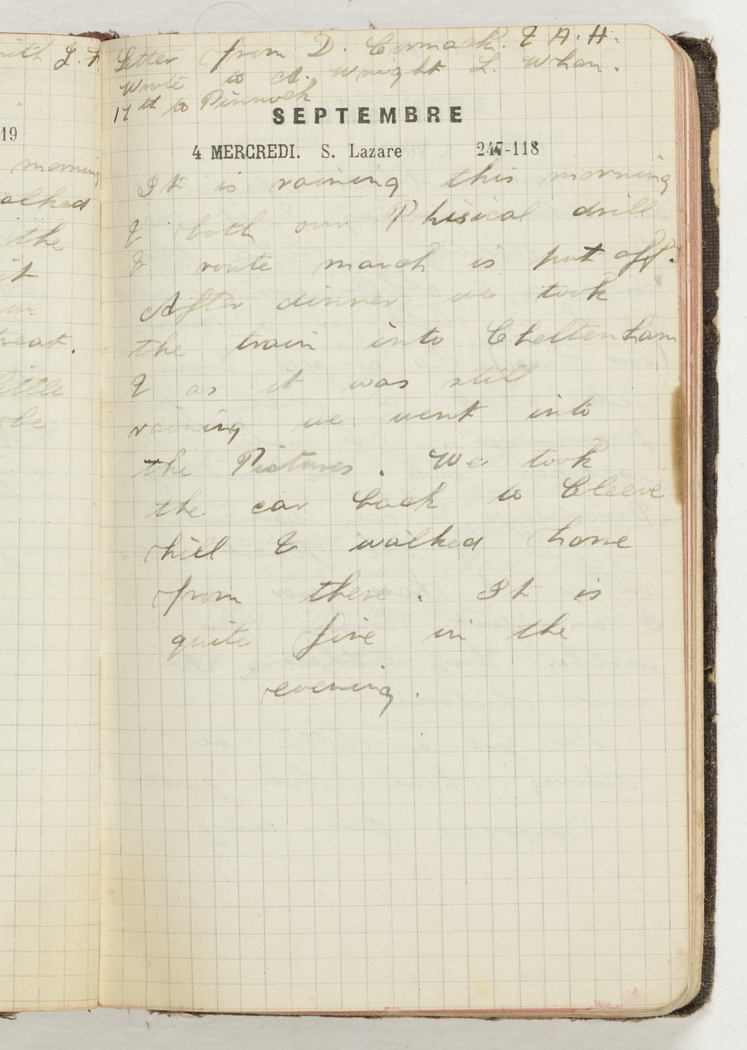 Letter from D. Cormack. & A. H.
Wrote to A. Wright L. Whan.
17th to Pinnock
SEPTEMBRE
4 MERCREDI. S. Lazare 247-118
It is raining this morning
& both our Phisical drill
& route march is put off.
After dinner we took
the train into Cheltenham
& as it was still
raining we went into
the Pictures. We took
the car back to Cleeve
hill & walked home
from there. It is
quite fine in the
evening.
19
morning
walked
the
it
treat.
little